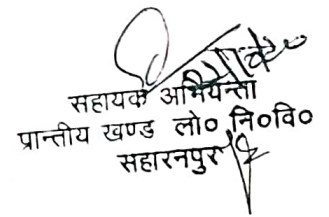 सहायक अभियन्ता
प्रान्तीय खण्ड लो० नि०वि०
सहारनपुर